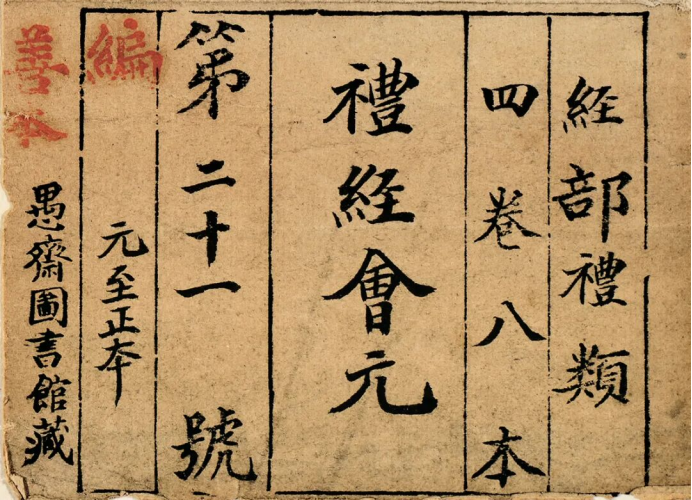 経部禮類
四卷八本
禮経會元
第二十一號
元至正本
愚齋圖書館藏
善本
編